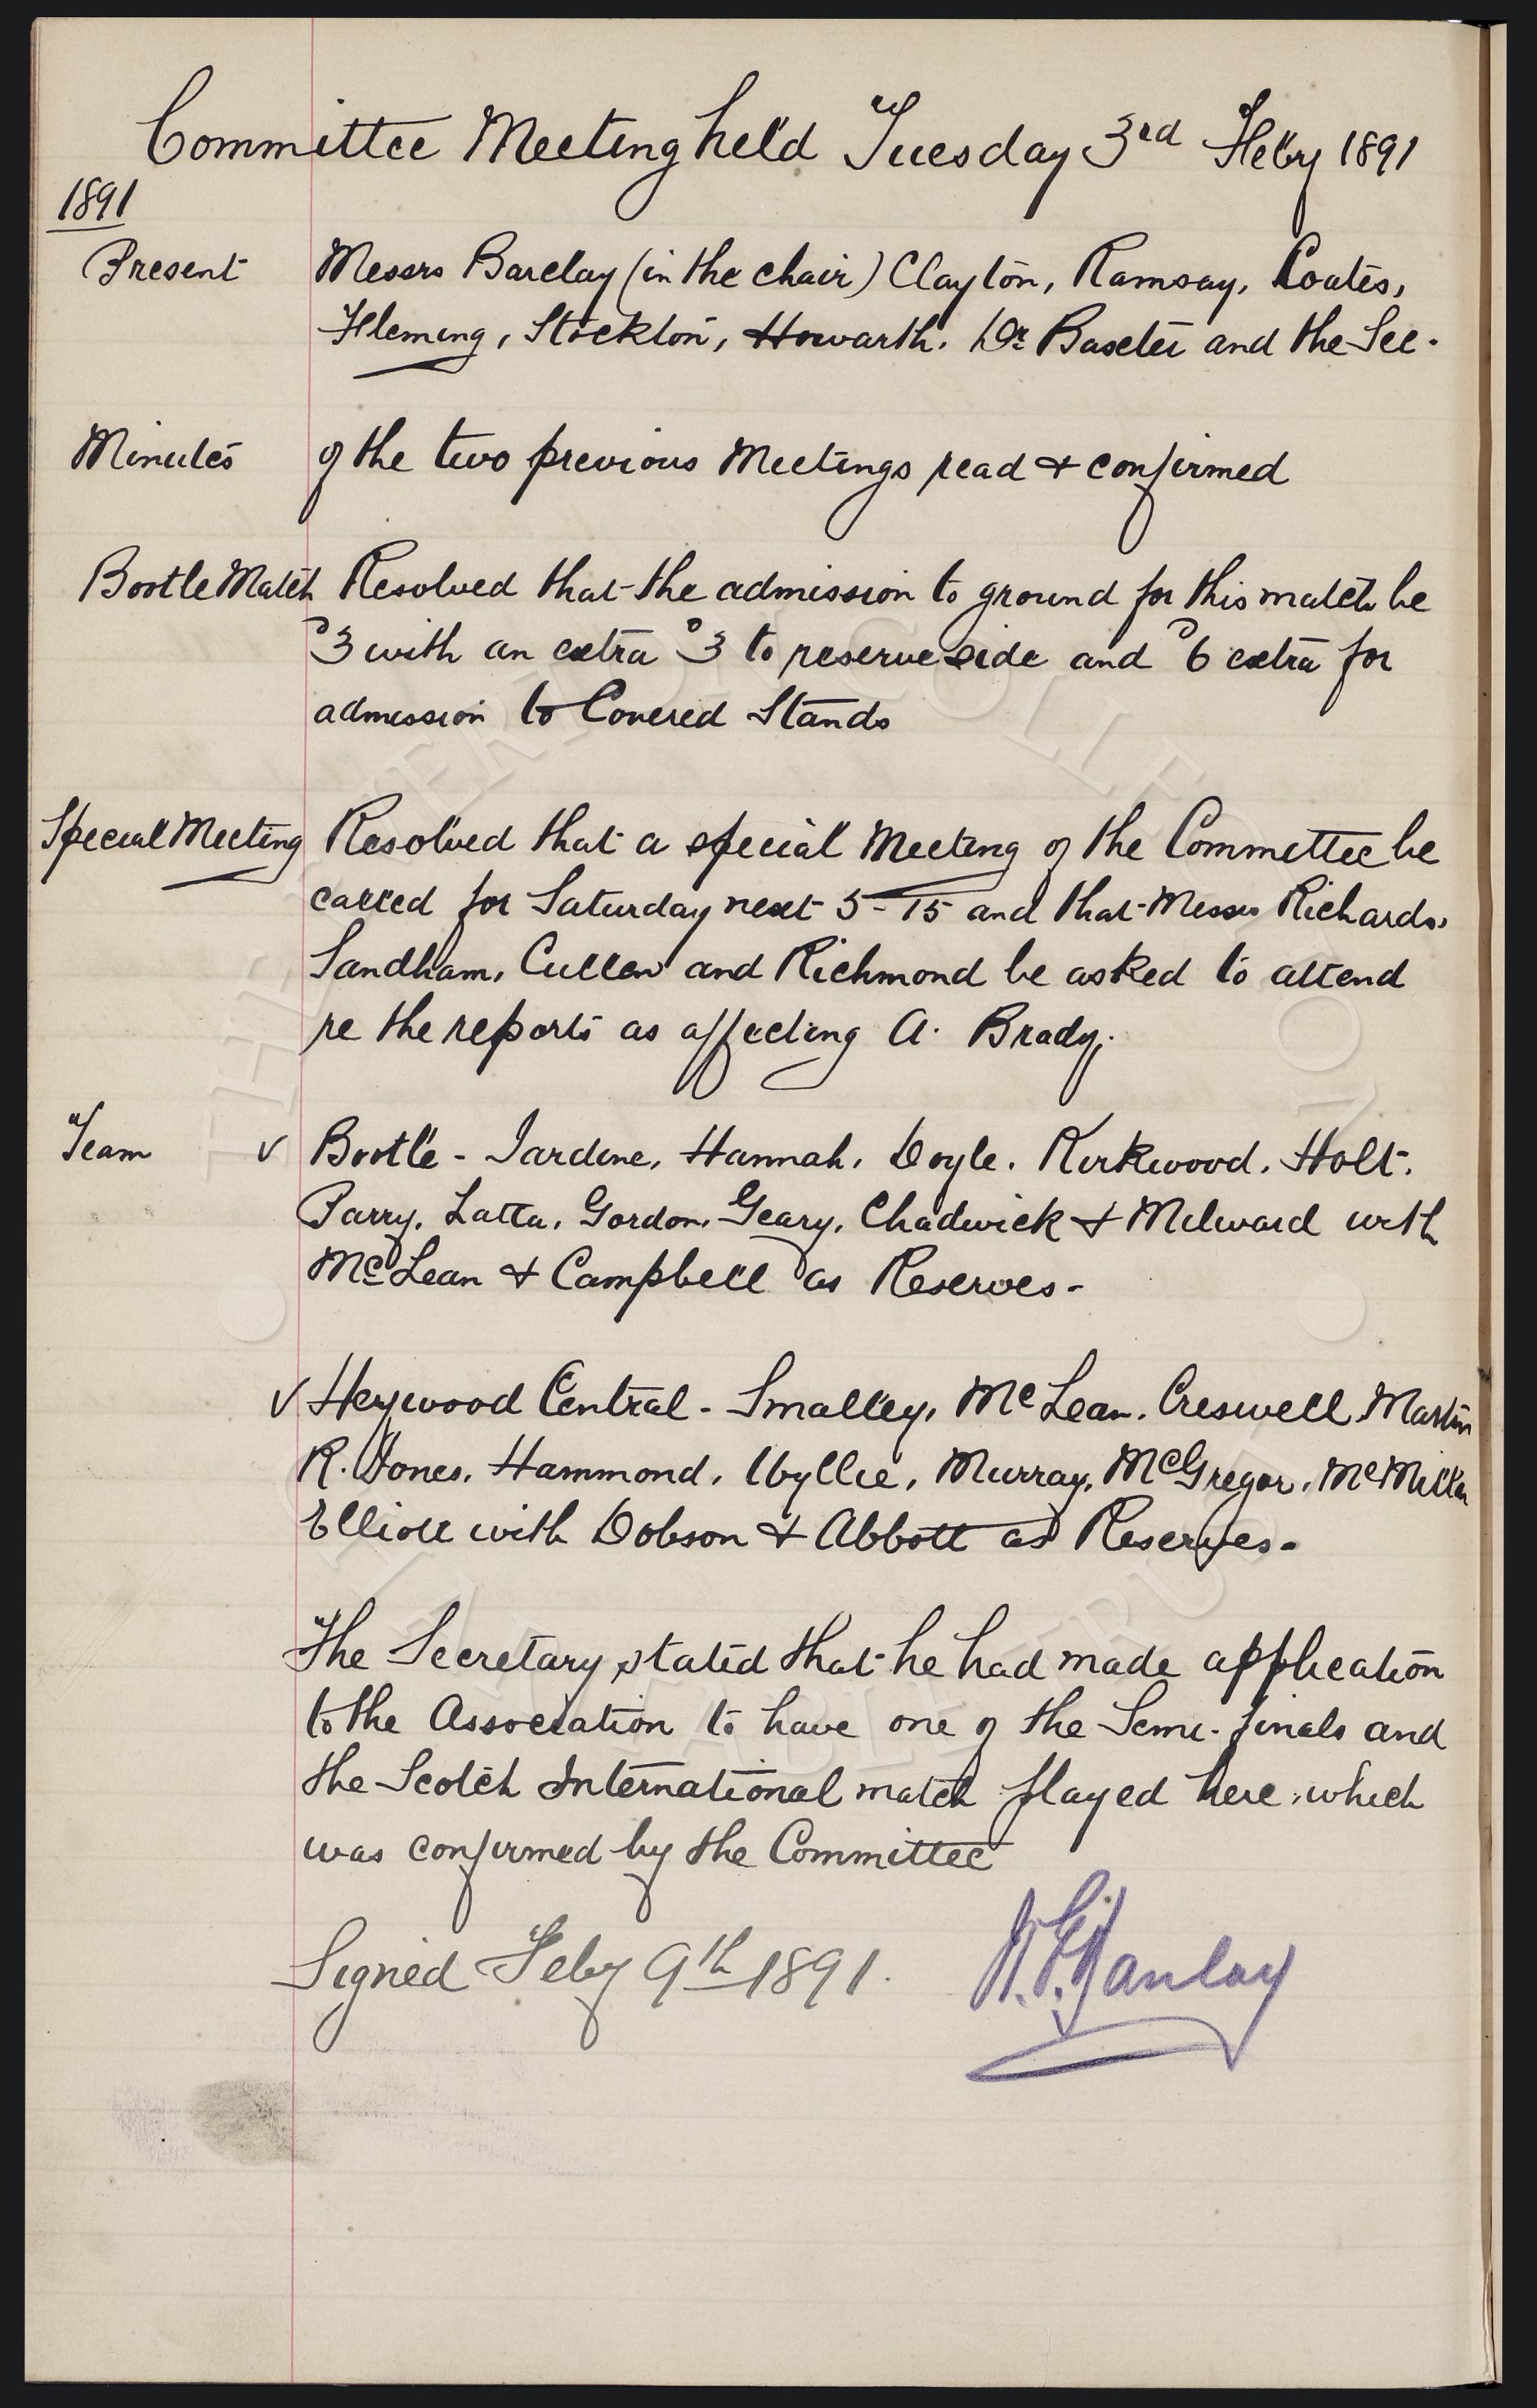 Committee Meeting held Tuesday 3rd Feby 1891
1891
Present Messrs Barclay (in the chair) Clayton, Ramsay, Coates,
Fleming, Stockton, Howarth. Dr Baxter and the Sec.
Minutes of the two previous Meetings read & confirmed
Bootle Match Resolved that the admission to ground for this match be
°3 with an extra °3 to reserve side and °6 extra for
admission to Covered Stands
Special Meeting Resolved that a special Meeting of the Committee be
called for Saturday next 5-15 and that Messrs Richards,
Sandham, Cullen and Richmond be asked to attend
re the reports as affecting A. Brady.
Team ✓ Bootle - Jardine, Hannah, Doyle. Kirkwood. Holt.
Parry. Latta, Gordon, Geary, Chadwick & Milward with
McLean & Campbell as Reserves -
✓ Heywood Central - Smalley, McLean. Creswell, Martin
R. Jones, Hammond, Wyllie, Murray, McGregor, McMillan
Elliott with Dobson & Abbott as Reserves -
The Secretary stated that he had made application
to the Association to have one of the Semi-finals and
the Scotch International match played here, which
was confirmed by the Committee
Signed Feby 9th 1891.
THE EVERTON COLLECTION
CHARITABLE TRUST